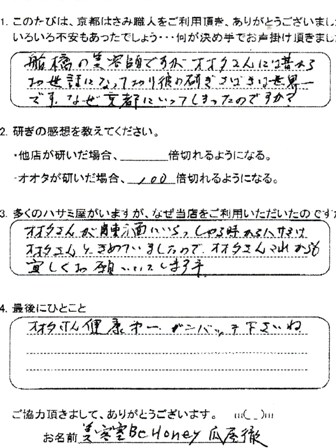 1. このたびは、京都はさみ職人をご利用頂き、ありがとうございまし
いろいろ不安もあったでしょう・・・何が決め手でお声掛け頂きまし
船橋の美容師ですが オオタさんには昔から
お世話になっており 彼の研ぎさばきは世界一
です。なぜ京都にいってしまったのですか?
2. 研ぎの感想を教えてください。
・他店が研いだ場合、 倍切れるようになる。
・オオタが研いだ場合、 100 倍切れるようになる。
3. 多くのハサミ屋がいますが、なぜ当店をご利用いただいたのですか
オオタさんが関東方面にいらっしゃる時からハサミは
オオタさんときめていましたので、オオタさんこれからも
宜しくお願いいたします
4. 最後にひとこと
オオタさん 健康第一 ガンバッテ下さいね
ご協力頂きまして、ありがとうございます。 m(_)m
お名前 美容室 Be Honey